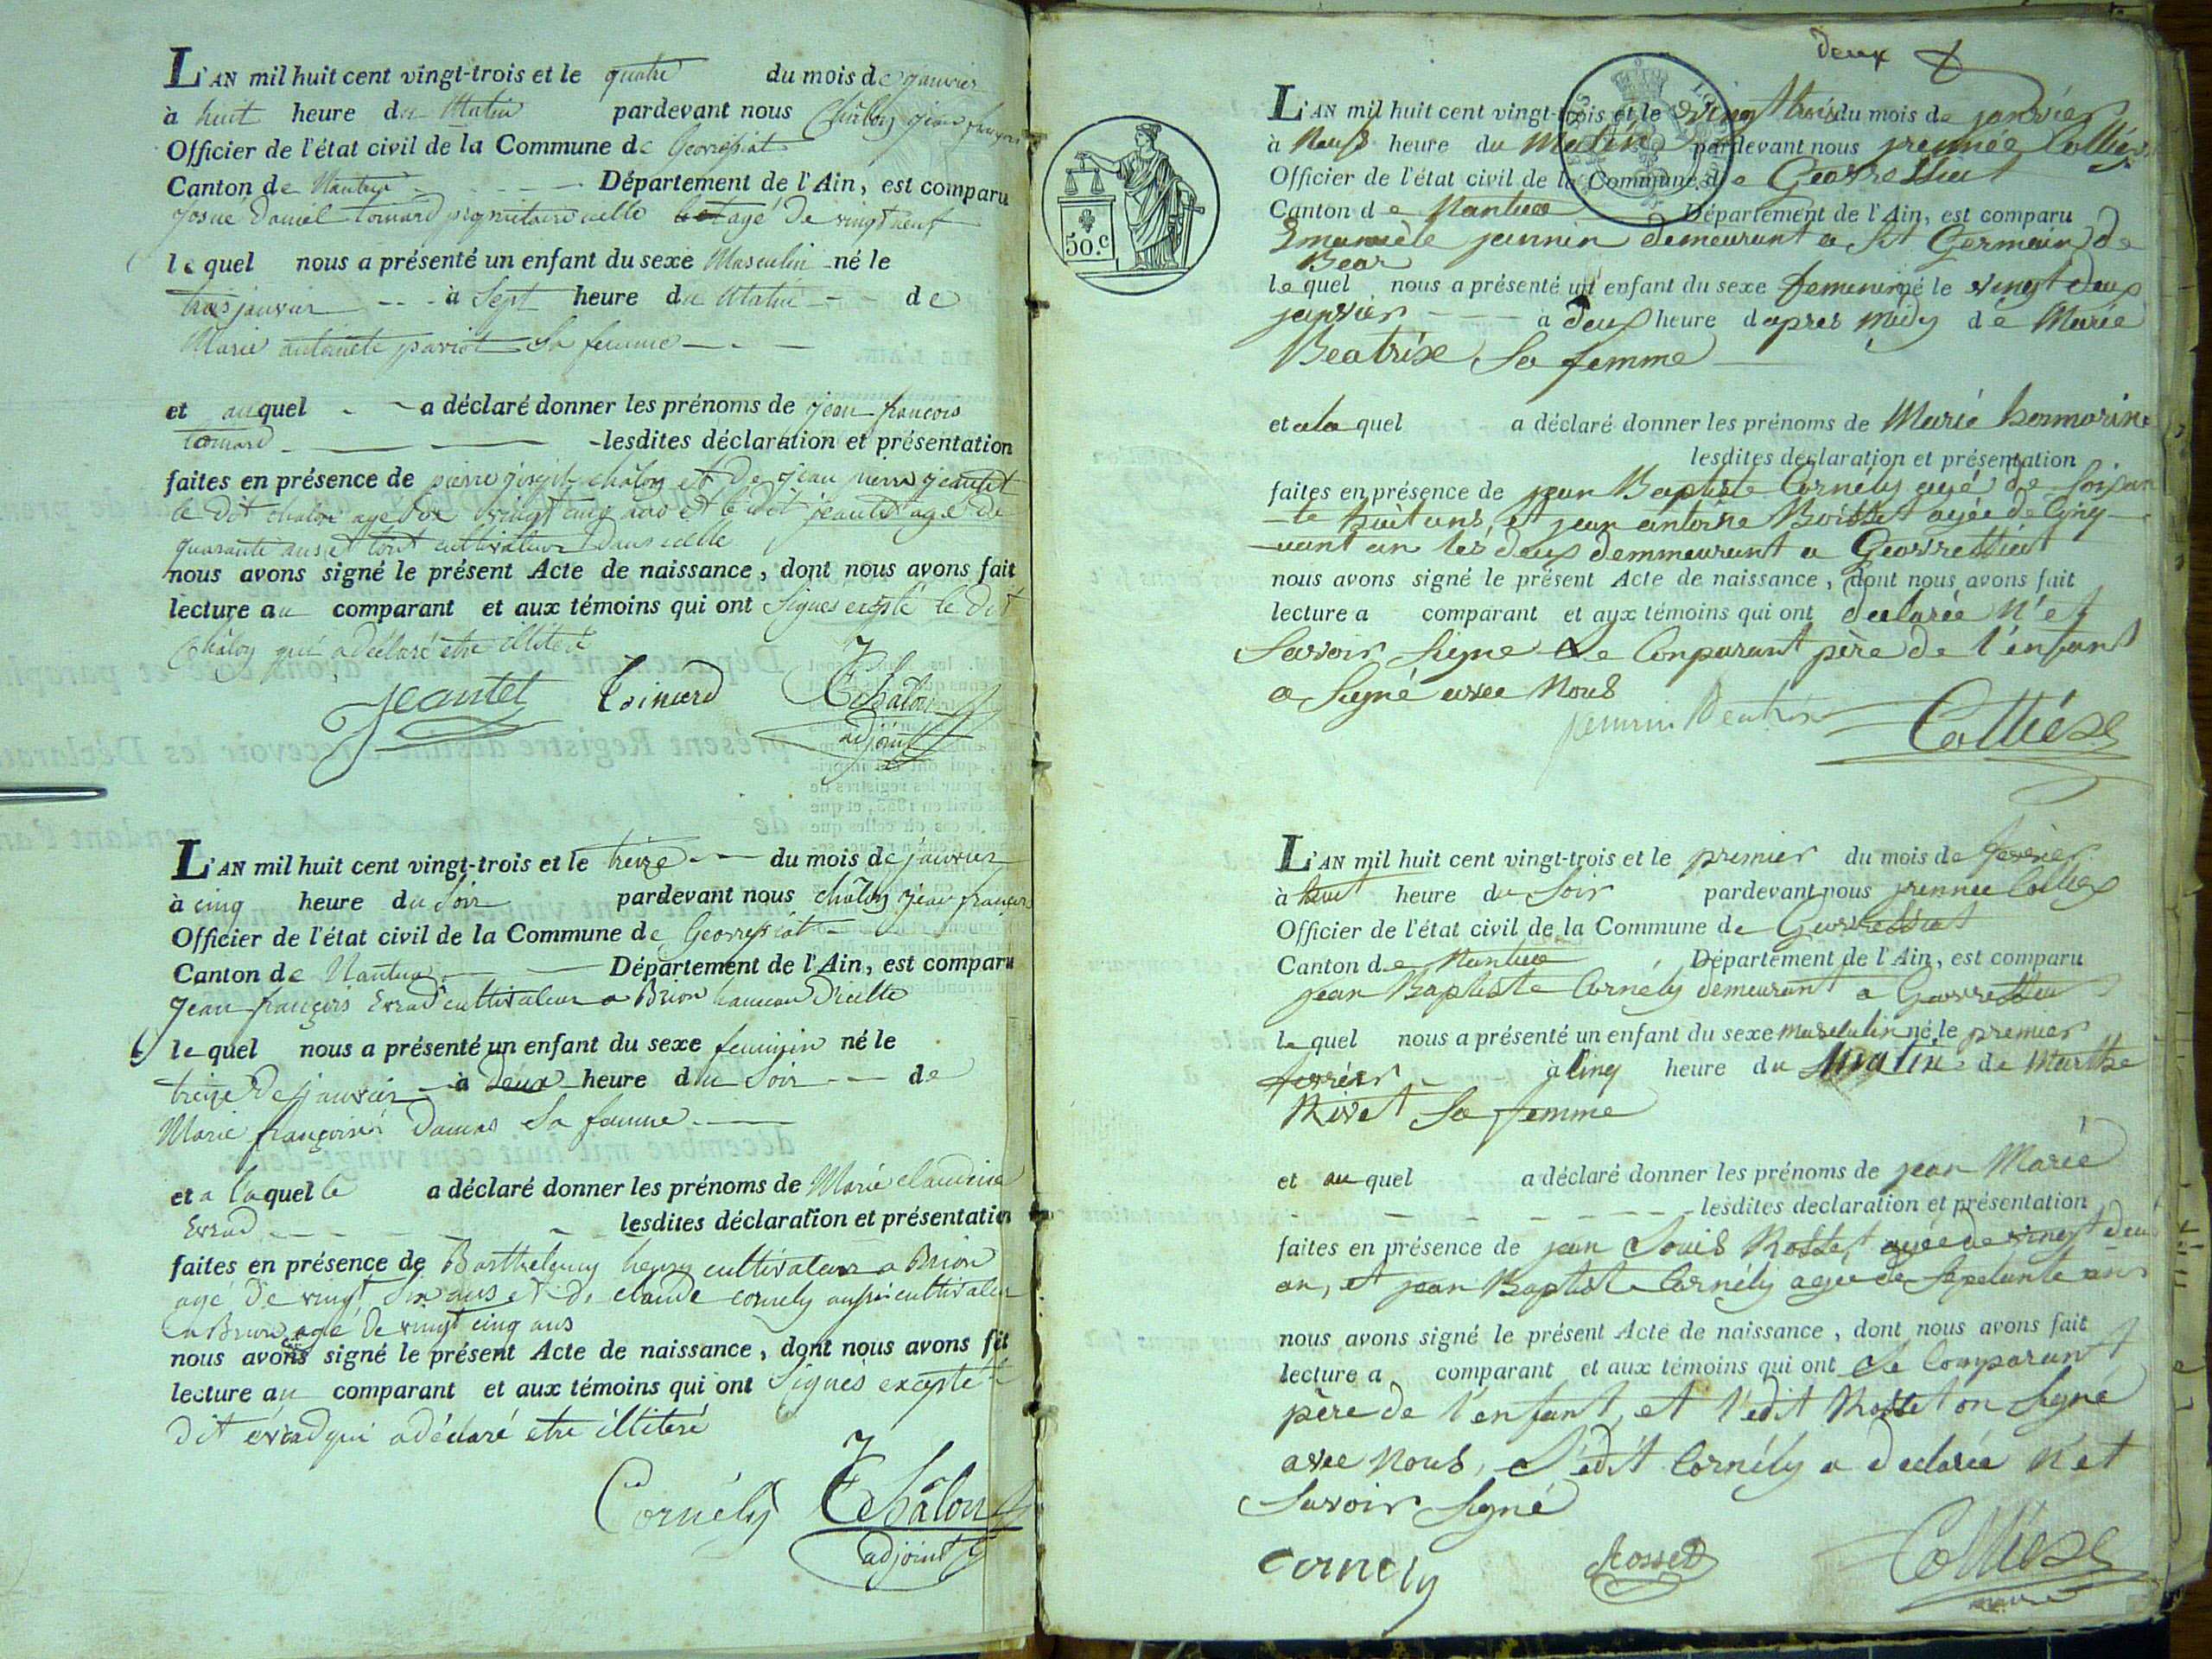 L'AN mil huit cent vingt-trois et le quatre du mois de janvier
à huit heure du Matin pardevant nous Châlon jean françois
Officier de l'état civil de la Commune de Geovressiat
Canton de Nantua Département de l'Ain, est comparu
josué daniel toinard propriétaire icelle et agé de vingt neuf
le quel nous a présenté un enfant du sexe Masculin né le
trois janvier à Sept heure du Matin de
Marie antoinete pariot Sa femme
et auquel a déclaré donner les prénoms de jean françois
toinard lesdites déclaration et présentation
faites en présence de pierre joseph châlon et de jean pierre jeantet
le dit chalon agé de vingt cinq ans et le dit jeantet agé de
quarante ans et tout cultivateur dans icelle
nous avons signé le présent Acte de naissance, dont nous avons fait
lecture au comparant et aux témoins qui ont Signés excepté le dit
Châlon qui a déclaré etre illiteré
Jeantet toinard Châlon
adjoint
L'AN mil huit cent vingt-trois et le treize du mois de janvier
à cinq heure du Soir pardevant nous châlon jean françois
Officier de l'état civil de la Commune de Geovressiat
Canton de Nantua Département de l'Ain, est comparu
jean françois Evrad cultivateur a Brion hameau d'icelle
le quel nous a présenté un enfant du sexe feminin né le
treize de janvier à deux heure du Soir de
Marie françoise Damas Sa femme
et a laquelle a déclaré donner les prénoms de Marie claudine
Evrad lesdites déclaration et présentation
faites en présence de Barthelemy henry cultivateur a Brion
agé de vingt Six ans et de claude cornely aussi cultivateur
a Brion agé de vingt cinq ans
nous avons signé le présent Acte de naissance, dont nous avons fit
lecture au comparant et aux témoins qui ont Signés excepté le
dit évrad qui a déclaré etre illiteré
Cornély Châlon
adjoint
deux
L'AN mil huit cent vingt-trois et le vingt trois du mois de janvier
à Neuf heure du Matin pardevant nous Collièx
Officier de l'état civil de la Commune de Geovressiat
Canton de Nantua Département de l'Ain, est comparu
Emanuèle jannin demeurant a St Germain de
Bear
le quel nous a présenté un enfant du sexe femenin né le vingt deux
janvier à deux heure d'apres midy de Marie
Beatrixe Sa femme
et a la quel a déclaré donner les prénoms de Marie hermarine
lesdites déclaration et présentation
faites en présence de jean Baptiste Cornély agé de Soixan
-te huit ans, et jean antoine Boisset agée de cinq
-uant an les deux demmeurant a Geovressiat
nous avons signé le présent Acte de naissance, dont nous avons fait
lecture a comparant et aux témoins qui ont declarée N'et
Savoir Signe Le Comparant père de l'enfant
a Signé avec Nous
Collièx
50.c
L'AN mil huit cent vingt-trois et le premier du mois de fevrier
à huit heure du Soir pardevant nous Collièx
Officier de l'état civil de la Commune de Geovressiat
Canton de Nantua Département de l'Ain, est comparu
jean Baptiste Cornély demeurant a Geovressiat
le quel nous a présenté un enfant du sexe Masculin né le premier
fevrier à Cinq heure du Matin de Marthe
Rivet Sa femme
et au quel a déclaré donner les prénoms de jean Marie
lesdites declaration et présentation
faites en présence de jean Louis Rosset agée de vingt deux
an, et jean Baptiste Cornély agée de Septante ans
nous avons signé le présent Acte de naissance, dont nous avons fait
lecture a comparant et aux témoins qui ont Le Comparant
père de l'enfant, et l'edit Rosset on Signé
avec Nous, L'edit Cornély a declarée N'et
Savoir Signé
cornely Rosset Collièx
maire